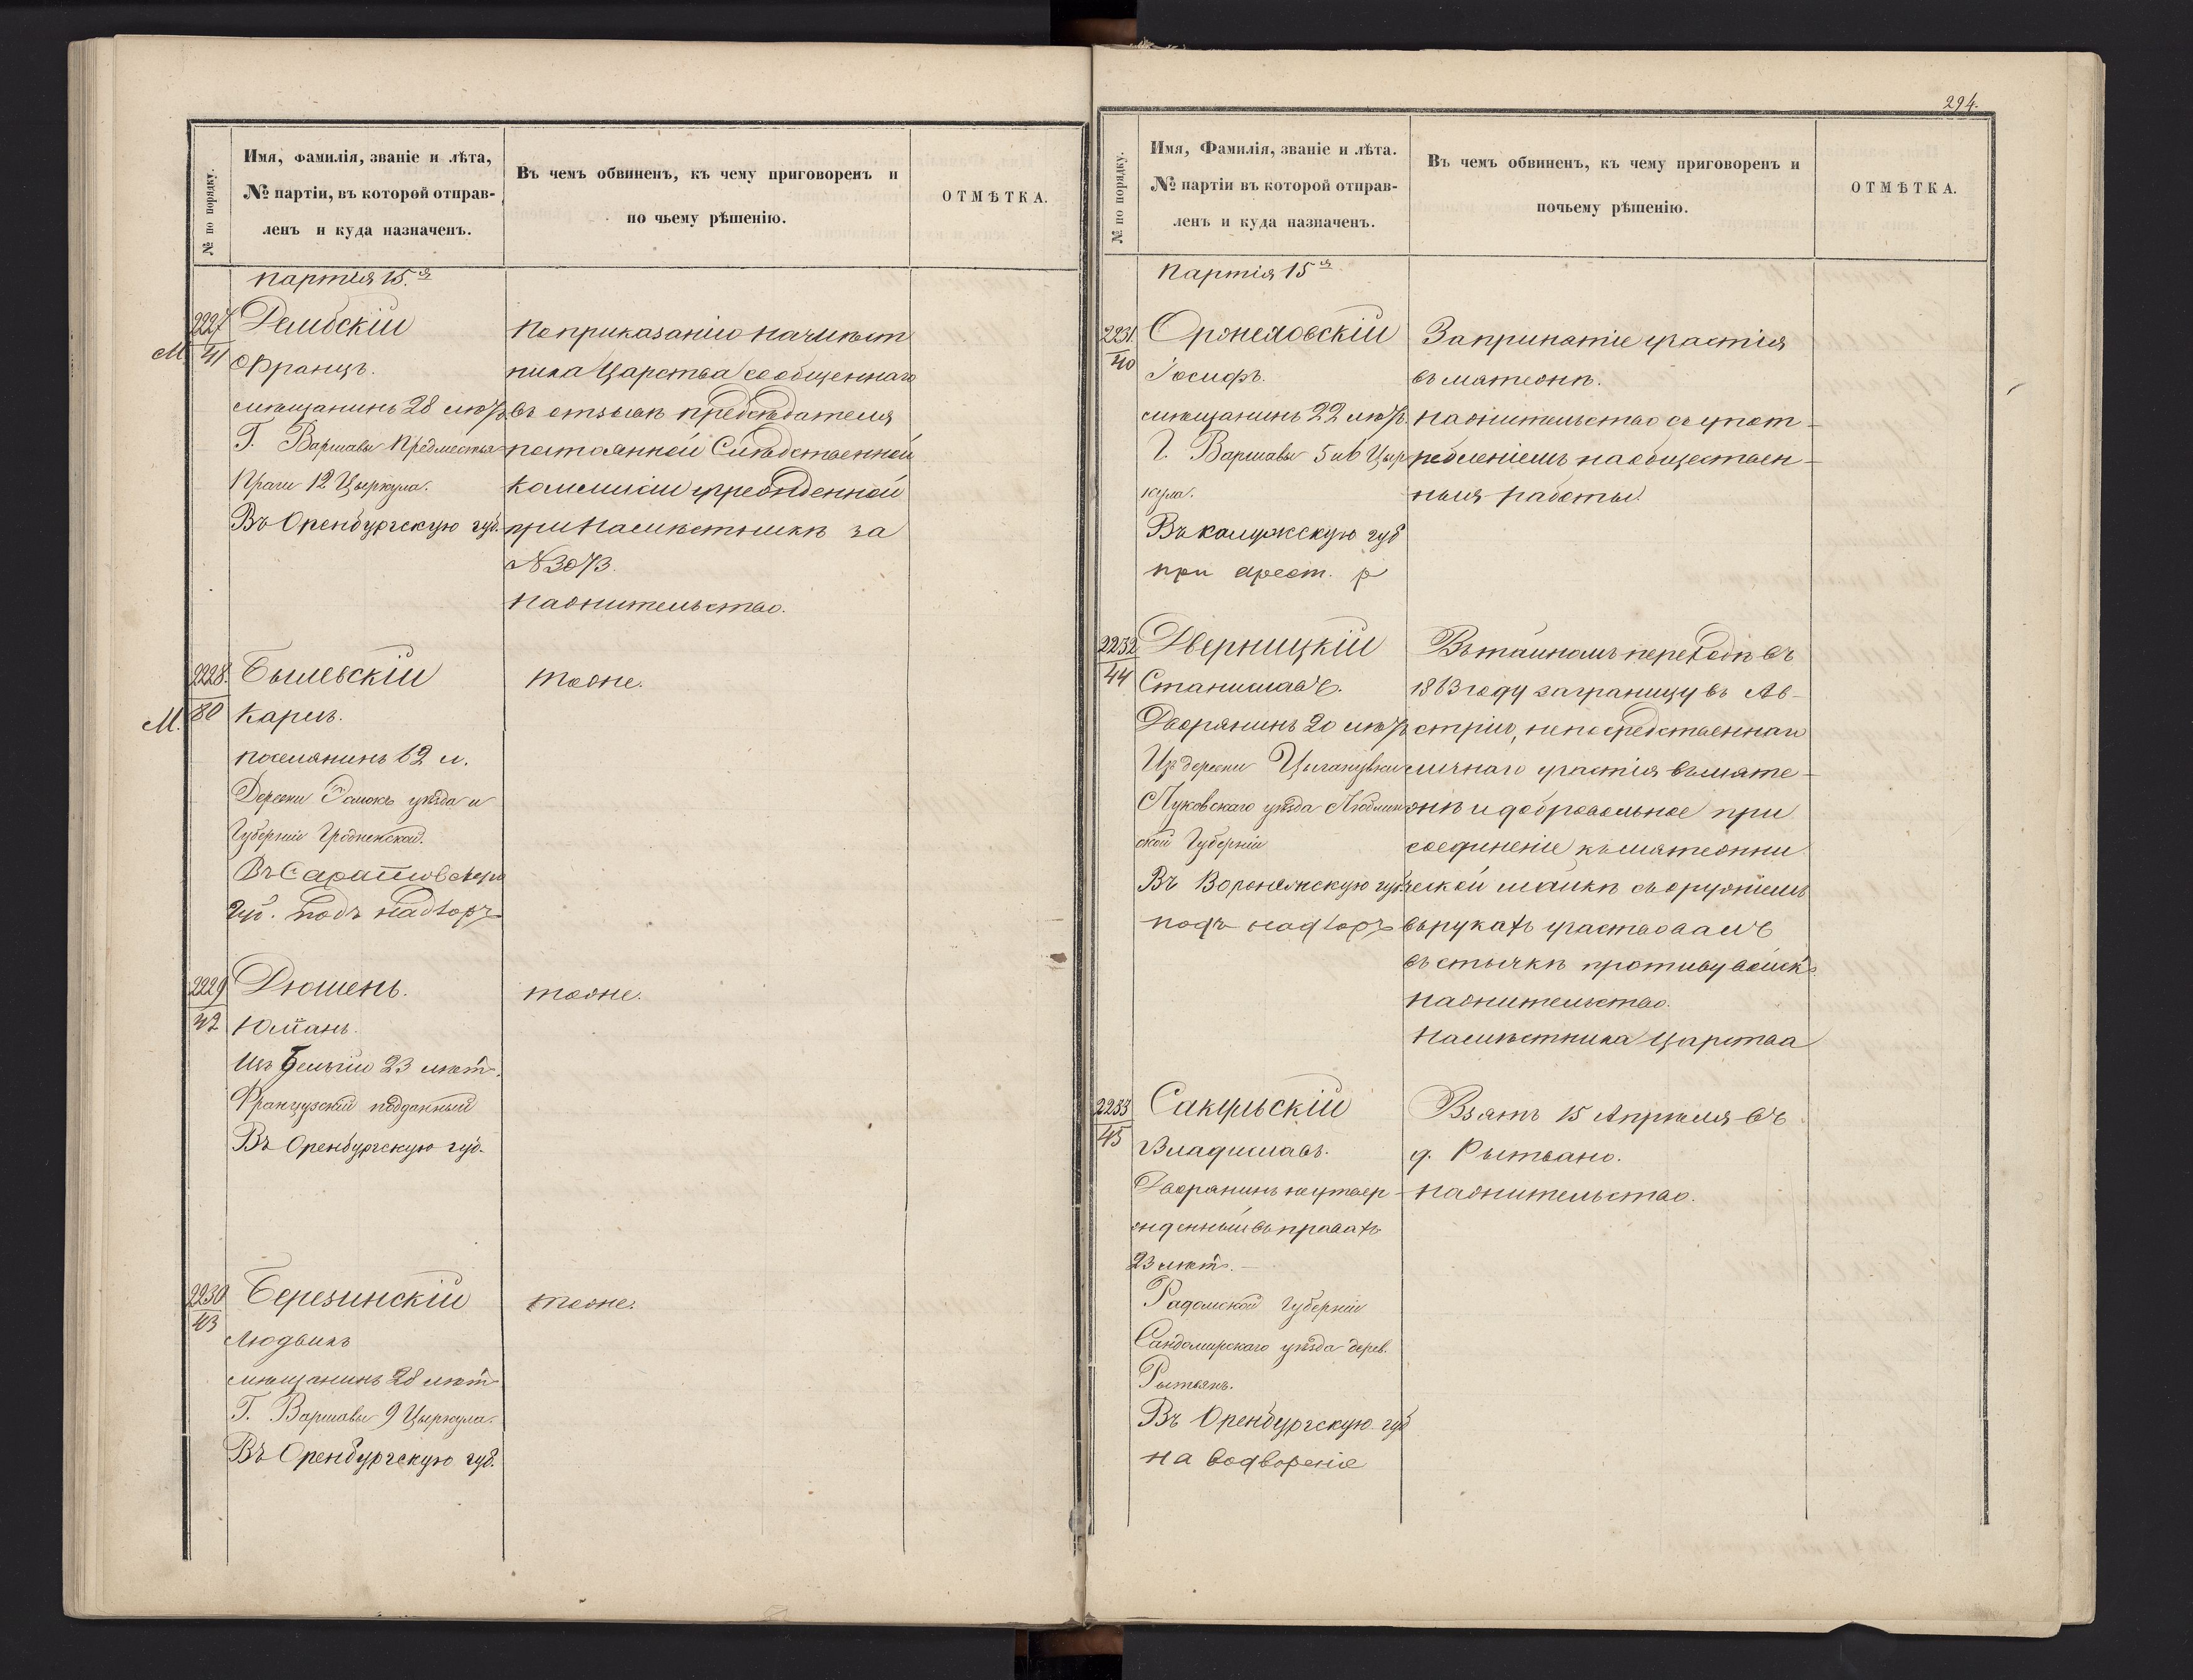 № по порядку.
Имя, фамилія, званіе и лѣта,
№ партіи, въ которой отправ-
ленъ и куда назначенъ.
Въ чемъ обвиненъ, къ чему приговоренъ и
по чьему рѣшенію.
ОТМѢТКА.
Партія 15.я
2227
41
М.
Рембскій
Францъ.
мѣщанинъ 28 лѣтъ
Г. Варшавы Предместья
Праги 12 Цыркула.
Въ Оренбургскую губ.
По приказанію Намѣст
ника Царства сообщеннаго
въ отзывѣ председателя
постоянной Следственной
Коммиссіи учрежденной
при Намѣстникѣ за
№ 3073.
На жительство.
2228.
80
М.
Былевскій
Карлъ.
поселянинъ 62 л.
Деревни уѣзда и
Губерніи Гродненской.
Въ Саратовскую
губ. подъ надзоръ
тоже.
2229
42
Дюшень.
Юліанъ.
Изъ Бельгіи 23 лѣтъ.
Французскій подданный
Въ Оренбургскую губ.
тоже.
2230
43
Березинскій
Людвикъ
мѣщанинъ 28 лѣтъ
Г. Варшавы 9 Цыркула.
Въ Оренбургскую губ.
тоже.
294.
№ по порядку.
Имя, Фамилія, званіе и лѣта.
№ партіи въ которой отправ-
ленъ и куда назначенъ.
Въ чемъ обвиненъ, къ чему приговоренъ и
почьему рѣшенію.
ОТМѢТКА.
Партія 15я
2231.
40
Оржеховскій
Іосифъ.
мѣщанинъ 22 лѣтъ.
Г. Варшавы 5 и 6 Цыр
кула.
Въ калужскую губ
при арест. р
За принятіе участія
въ мятежѣ.
На жительство съ упот-
ребленіемъ на обществен-
ныя работы.
2232
44
Дверницкій
Станиславъ.
Дворянинъ 20 лѣтъ
Изъ деревни Цыганувки
Луковскаго уѣзда Люблин
ской Губерніи
Въ Воронежскую губ.
подъ надзоръ
Въ тайномъ переходѣ въ
1863 году заграницу въ Ав-
стрію, непосредственнаго
личнаго участія въ мяте-
жѣ и добровольное при
соединеніе къ мятежни
ческой шайкѣ съ оружіемъ
въ рукахъ участвовалъ
въ стычкѣ противу войскъ
На жительство.
Намѣстника Царства
2233
45
Сакульскій
Владиславъ.
Дворянинъ неутвер-
жденный въ правахъ
23 лѣтъ.
Радомской Губерніи
Сандомирскаго уѣзда дерев.
Рытвянъ.
Въ Оренбургскую губ
на водвореніе
Взятъ 15 Апрѣля въ
д. Рытвано.
На жительство.